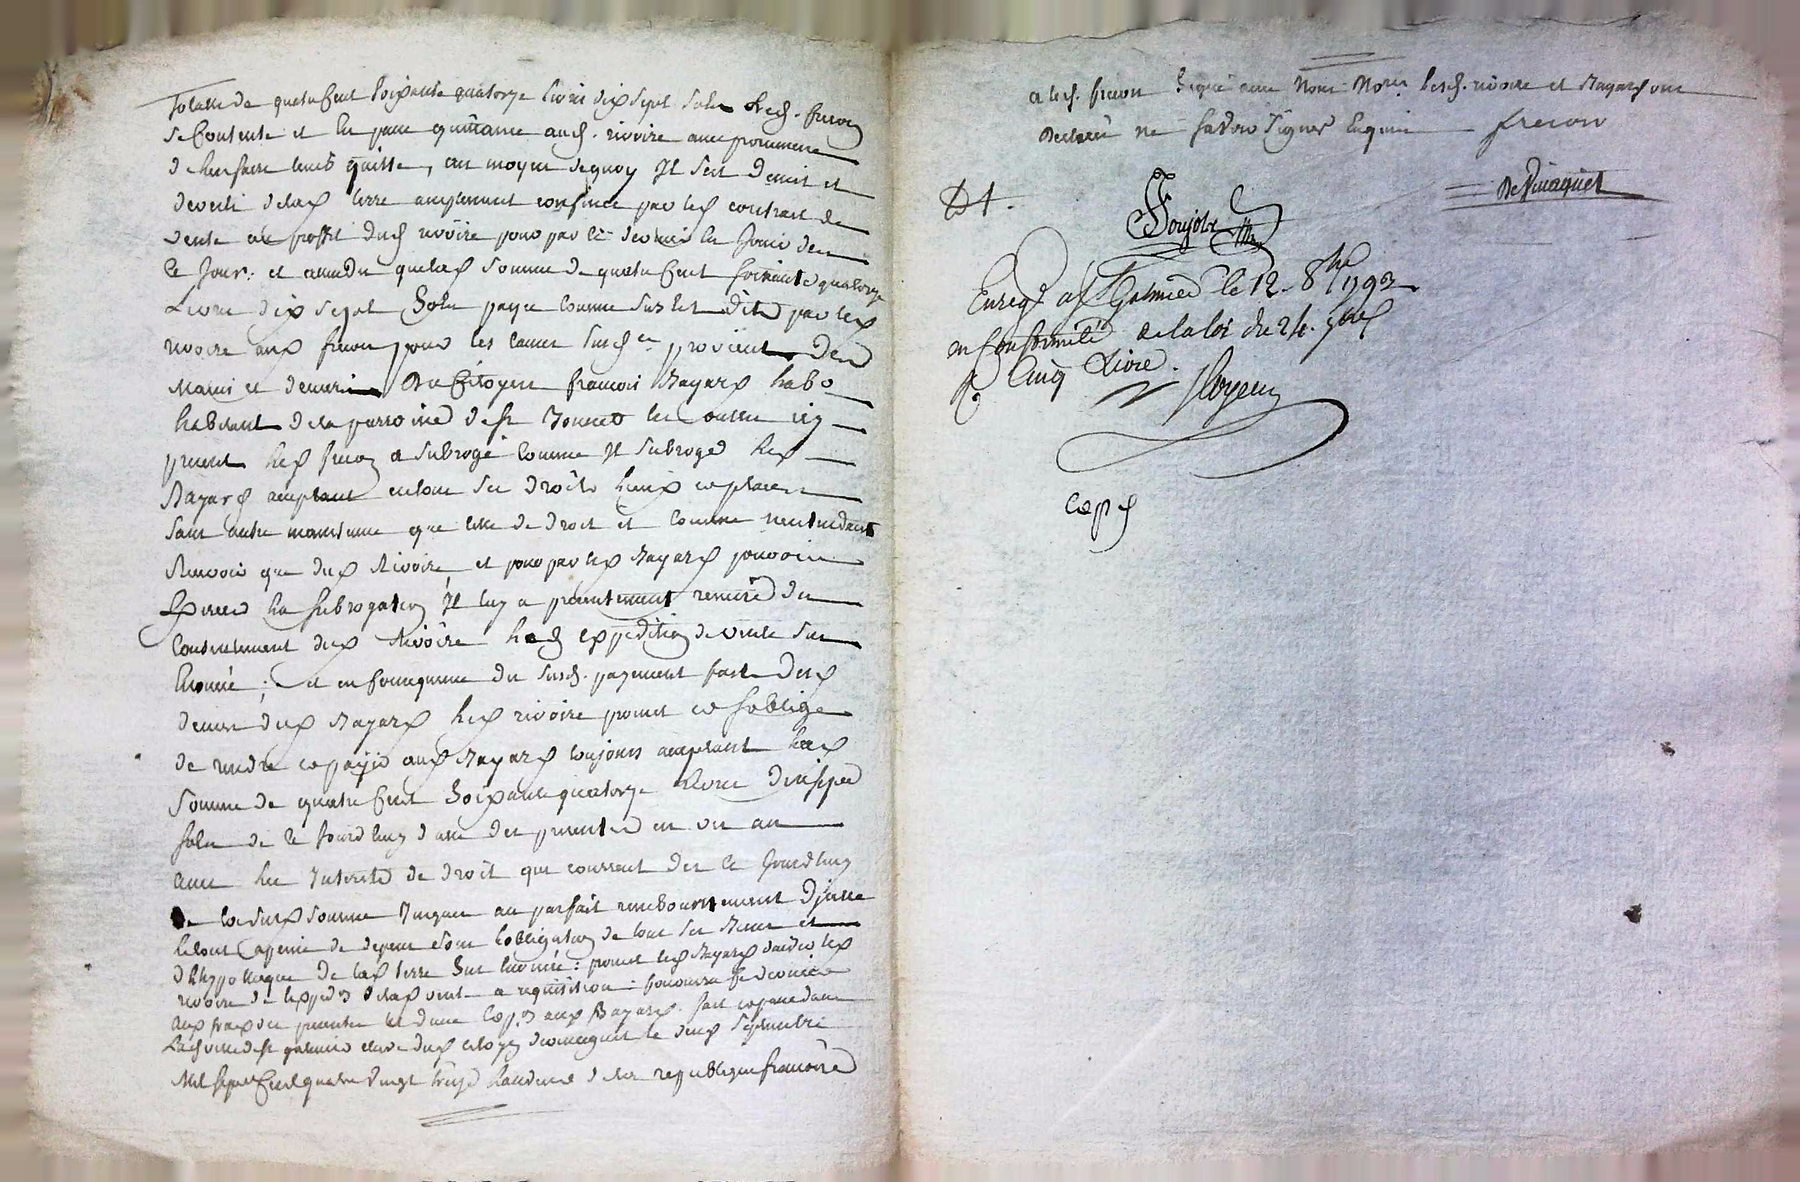 totalle de quatre Cent Soixante quatorze livres dix sept sols led. frecon
se Contente et en passe quittance aud. rivoire avec promesse
d'en faire tenir quitte, au moyen de quoy Il s'est demis et
devetu de lad. terre amplement confinée par led. contrat de
vente au proffit dud. rivoire pour par lui de en jouir des
Ce jour: et attendu que lad. somme de quatre Cent soixante quatorze
Livres dix sept Sols payée comme sus est dit par led.
rivoire aud. frecon pour les causes susd. provient des
mains et deniers du Citoyen francois Bayard
habitant de la parroisse de st Bonnet les oulles icy
present led. frecon a subrogé comme Il subroge led.
Bayard acceptant en tous ses droits lieux et places
sans autre maintenue que celle de droit et comme n'entendant
Recevoir que dud. Rivoire et pour par led. Bayard pouvoir
Exercer la subrogation Il luy a presentement remis du
Consentement dud. Rivoire lad. expedition de vente sus
Enoncée; et en consequence du susd. payement fait des
deniers dud. Bayard led. rivoire promet et s'oblige
de rendre et payer aud. Bayard toujours acceptant lad.
somme de quatre Cent Soixante quatorze livres dix sept
sols de ce jourd'huy date des presentes en un an
avec les Interets de droit qui courront des ce jourd'huy
de lad. somme jusques au parfait remboursement d'icelle
le tout a peine de depens sous l'obligation de tous ses biens et
d'hypotheque de lad. terre sus enoncée: promet led. Bayard d'aider led.
rivoire de l'exped. de lad. vente a requisition:
aux frais des presentes et d'une Cop. aud. Bayard. fait et passé dans
Lad. ville de st galmier etude dud. citoyen devinaguet le deux septembre
Mil sept Cent quatre vingt treize l'an deux de la republique francoise
a led. frecon Signé avec Nous Nore. lesd. rivoire et Bayard ont
declaré ne savoir signer Enquis frecon
DeVinaguet
D t.
Enregé a St Galmier le 12. 8bre 1793
en Conformité de la loi du 24. 7bre
R. Cinq Livres.
Cop d